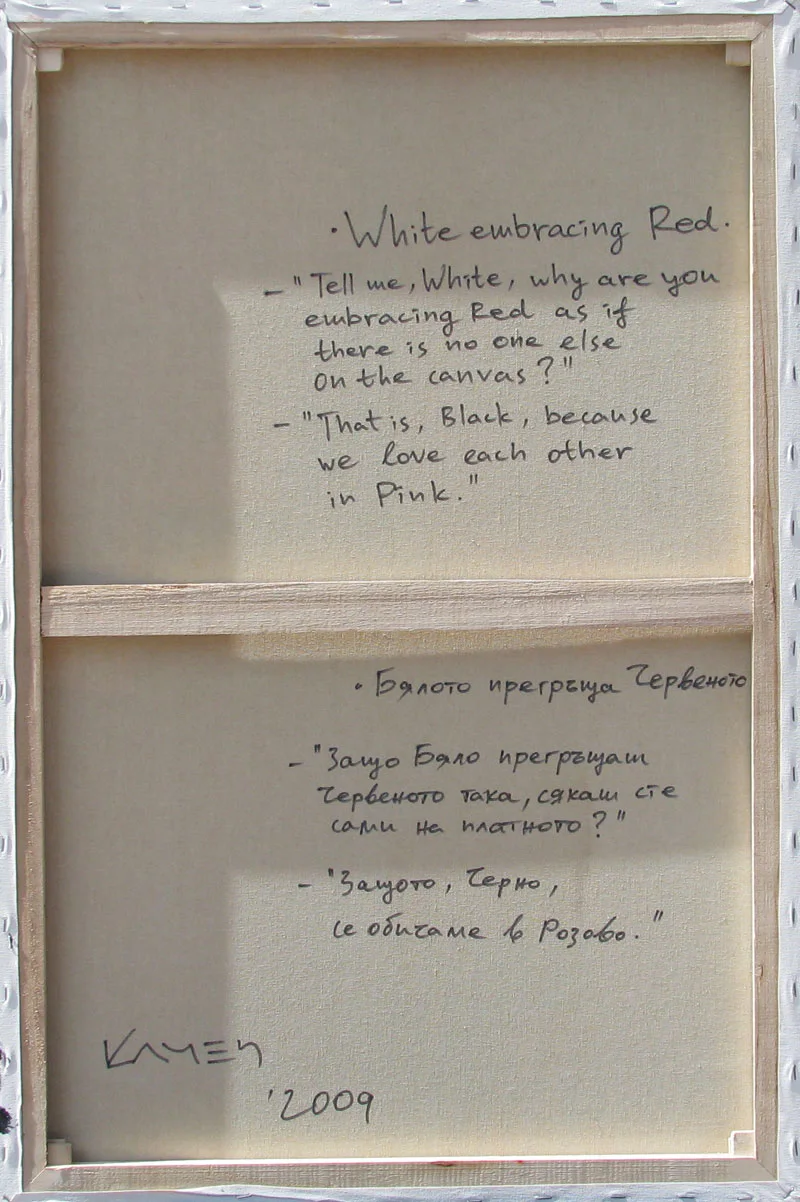 · White embracing Red.
– "Tell me, White, why are you
embracing Red as if
there is no one else
on the canvas?"
– "That is, Black, because
we love each other
in Pink."
· Бялото прегръща Червеното
– "Защо Бяло прегръщаш
Червеното така, сякаш сте
сами на платното?"
– "Защото, Черно,
се обичаме в Розово."
KAMEN
'2009